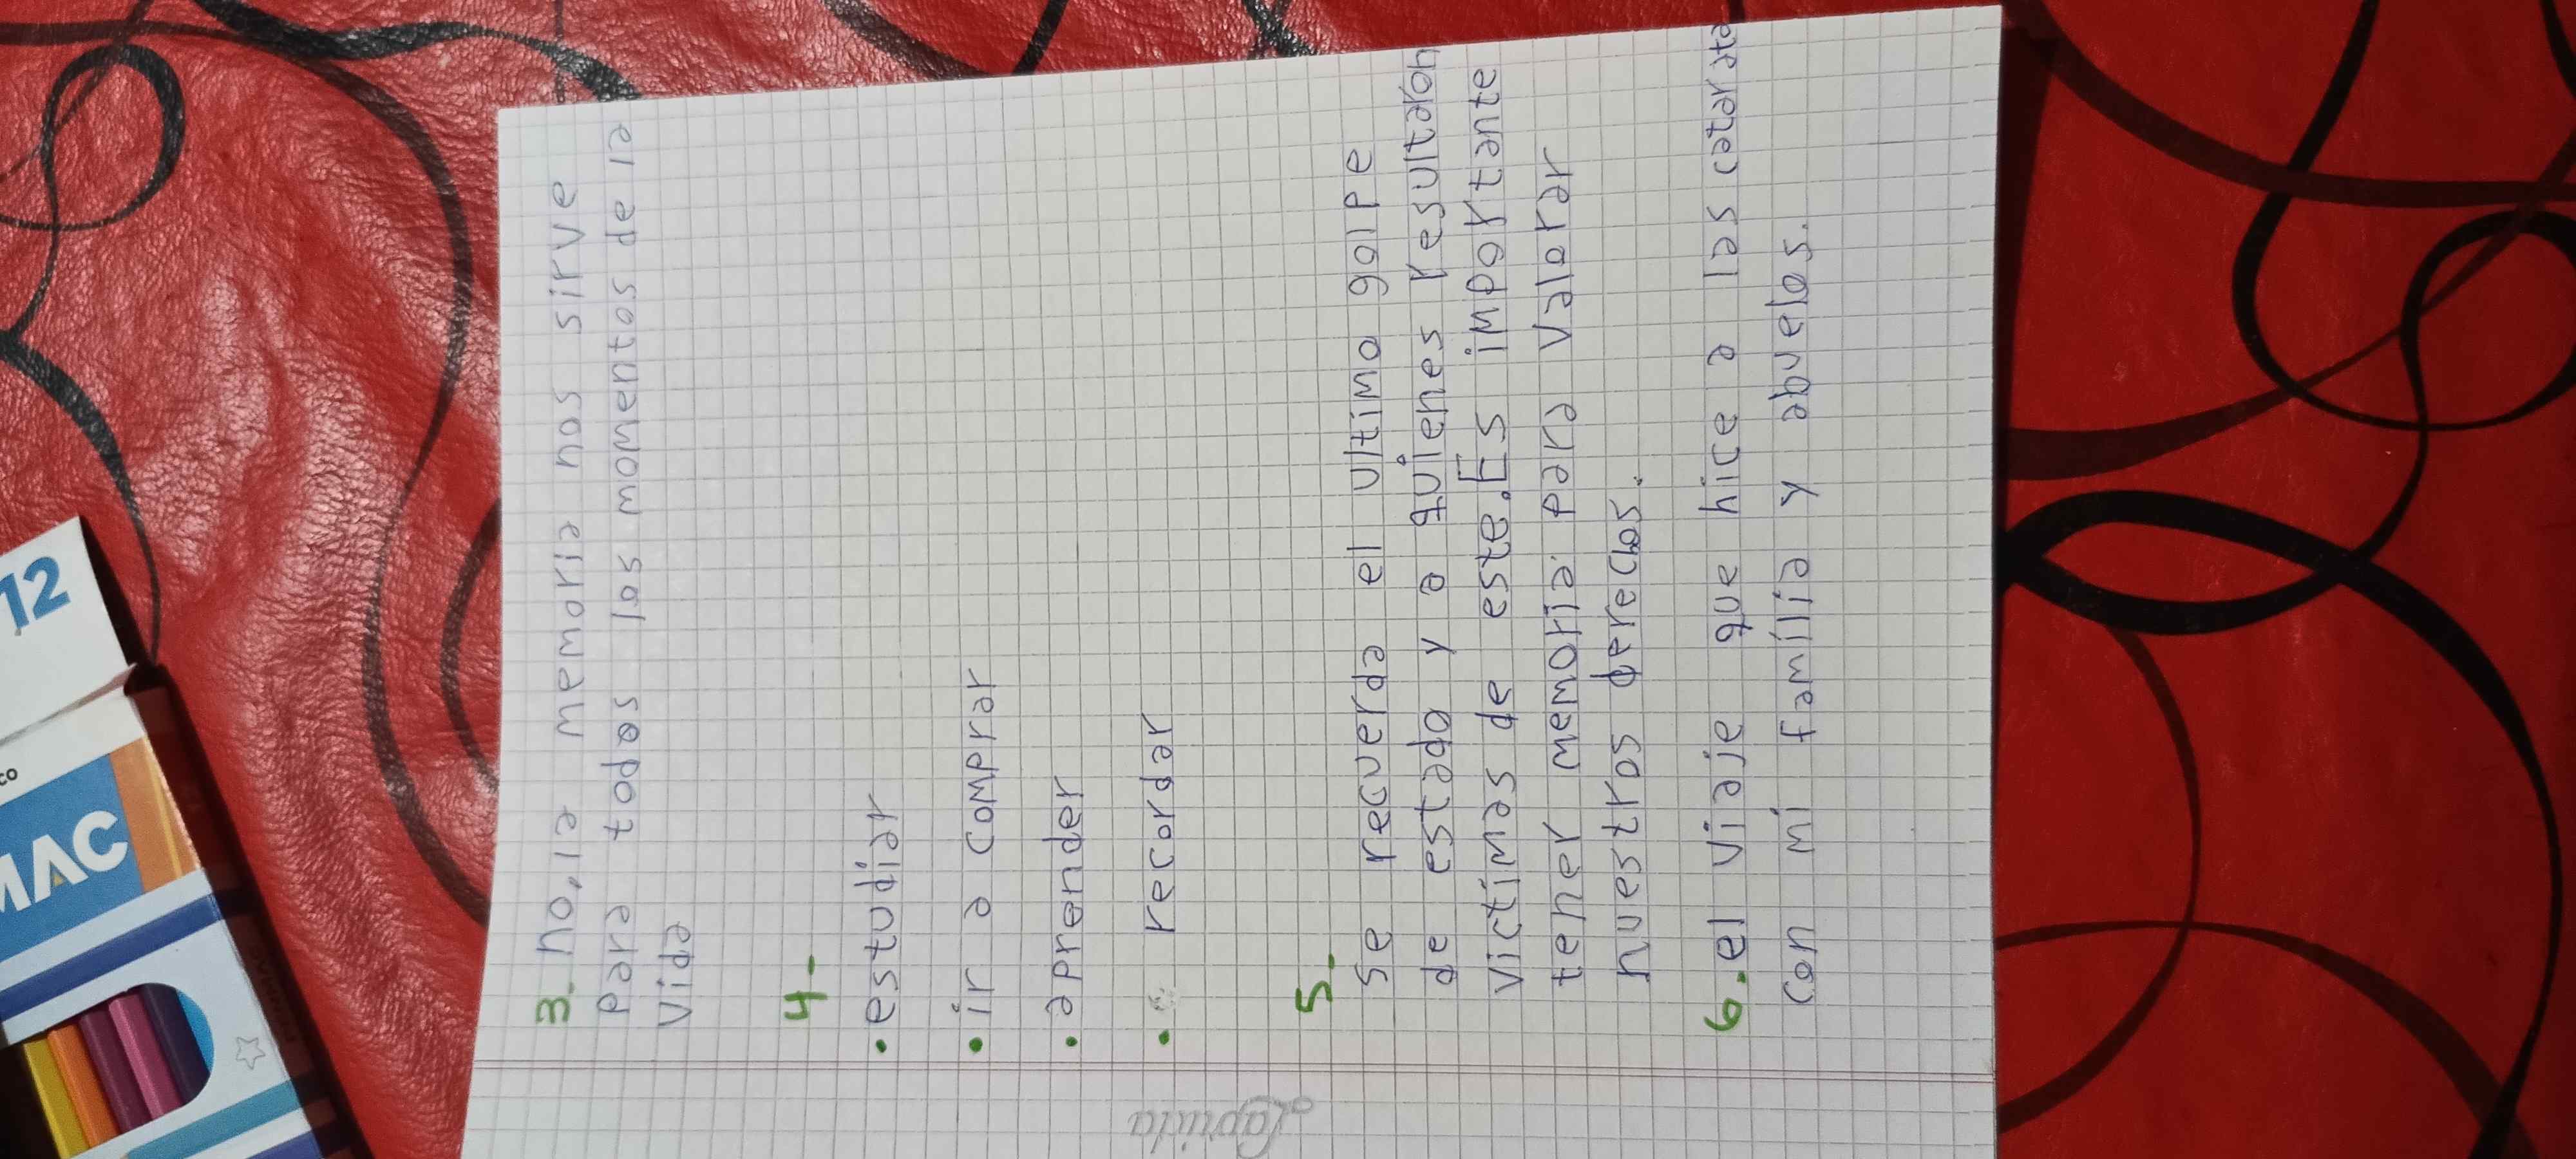 3_ no, la memoria nos sirve
para todos los momentos de la
vida
4-
• estudiar
• ir a comprar
• aprender
• recordar
5_
se recuerda el ultimo golpe
de estado y a quienes resultaron
victimas de este. Es importante
tener memoria para valorar
nuestros derechos.
6. el viaje que hice a las catarata
con mi familia y abuelos.
Laprida
12
CO
MAC